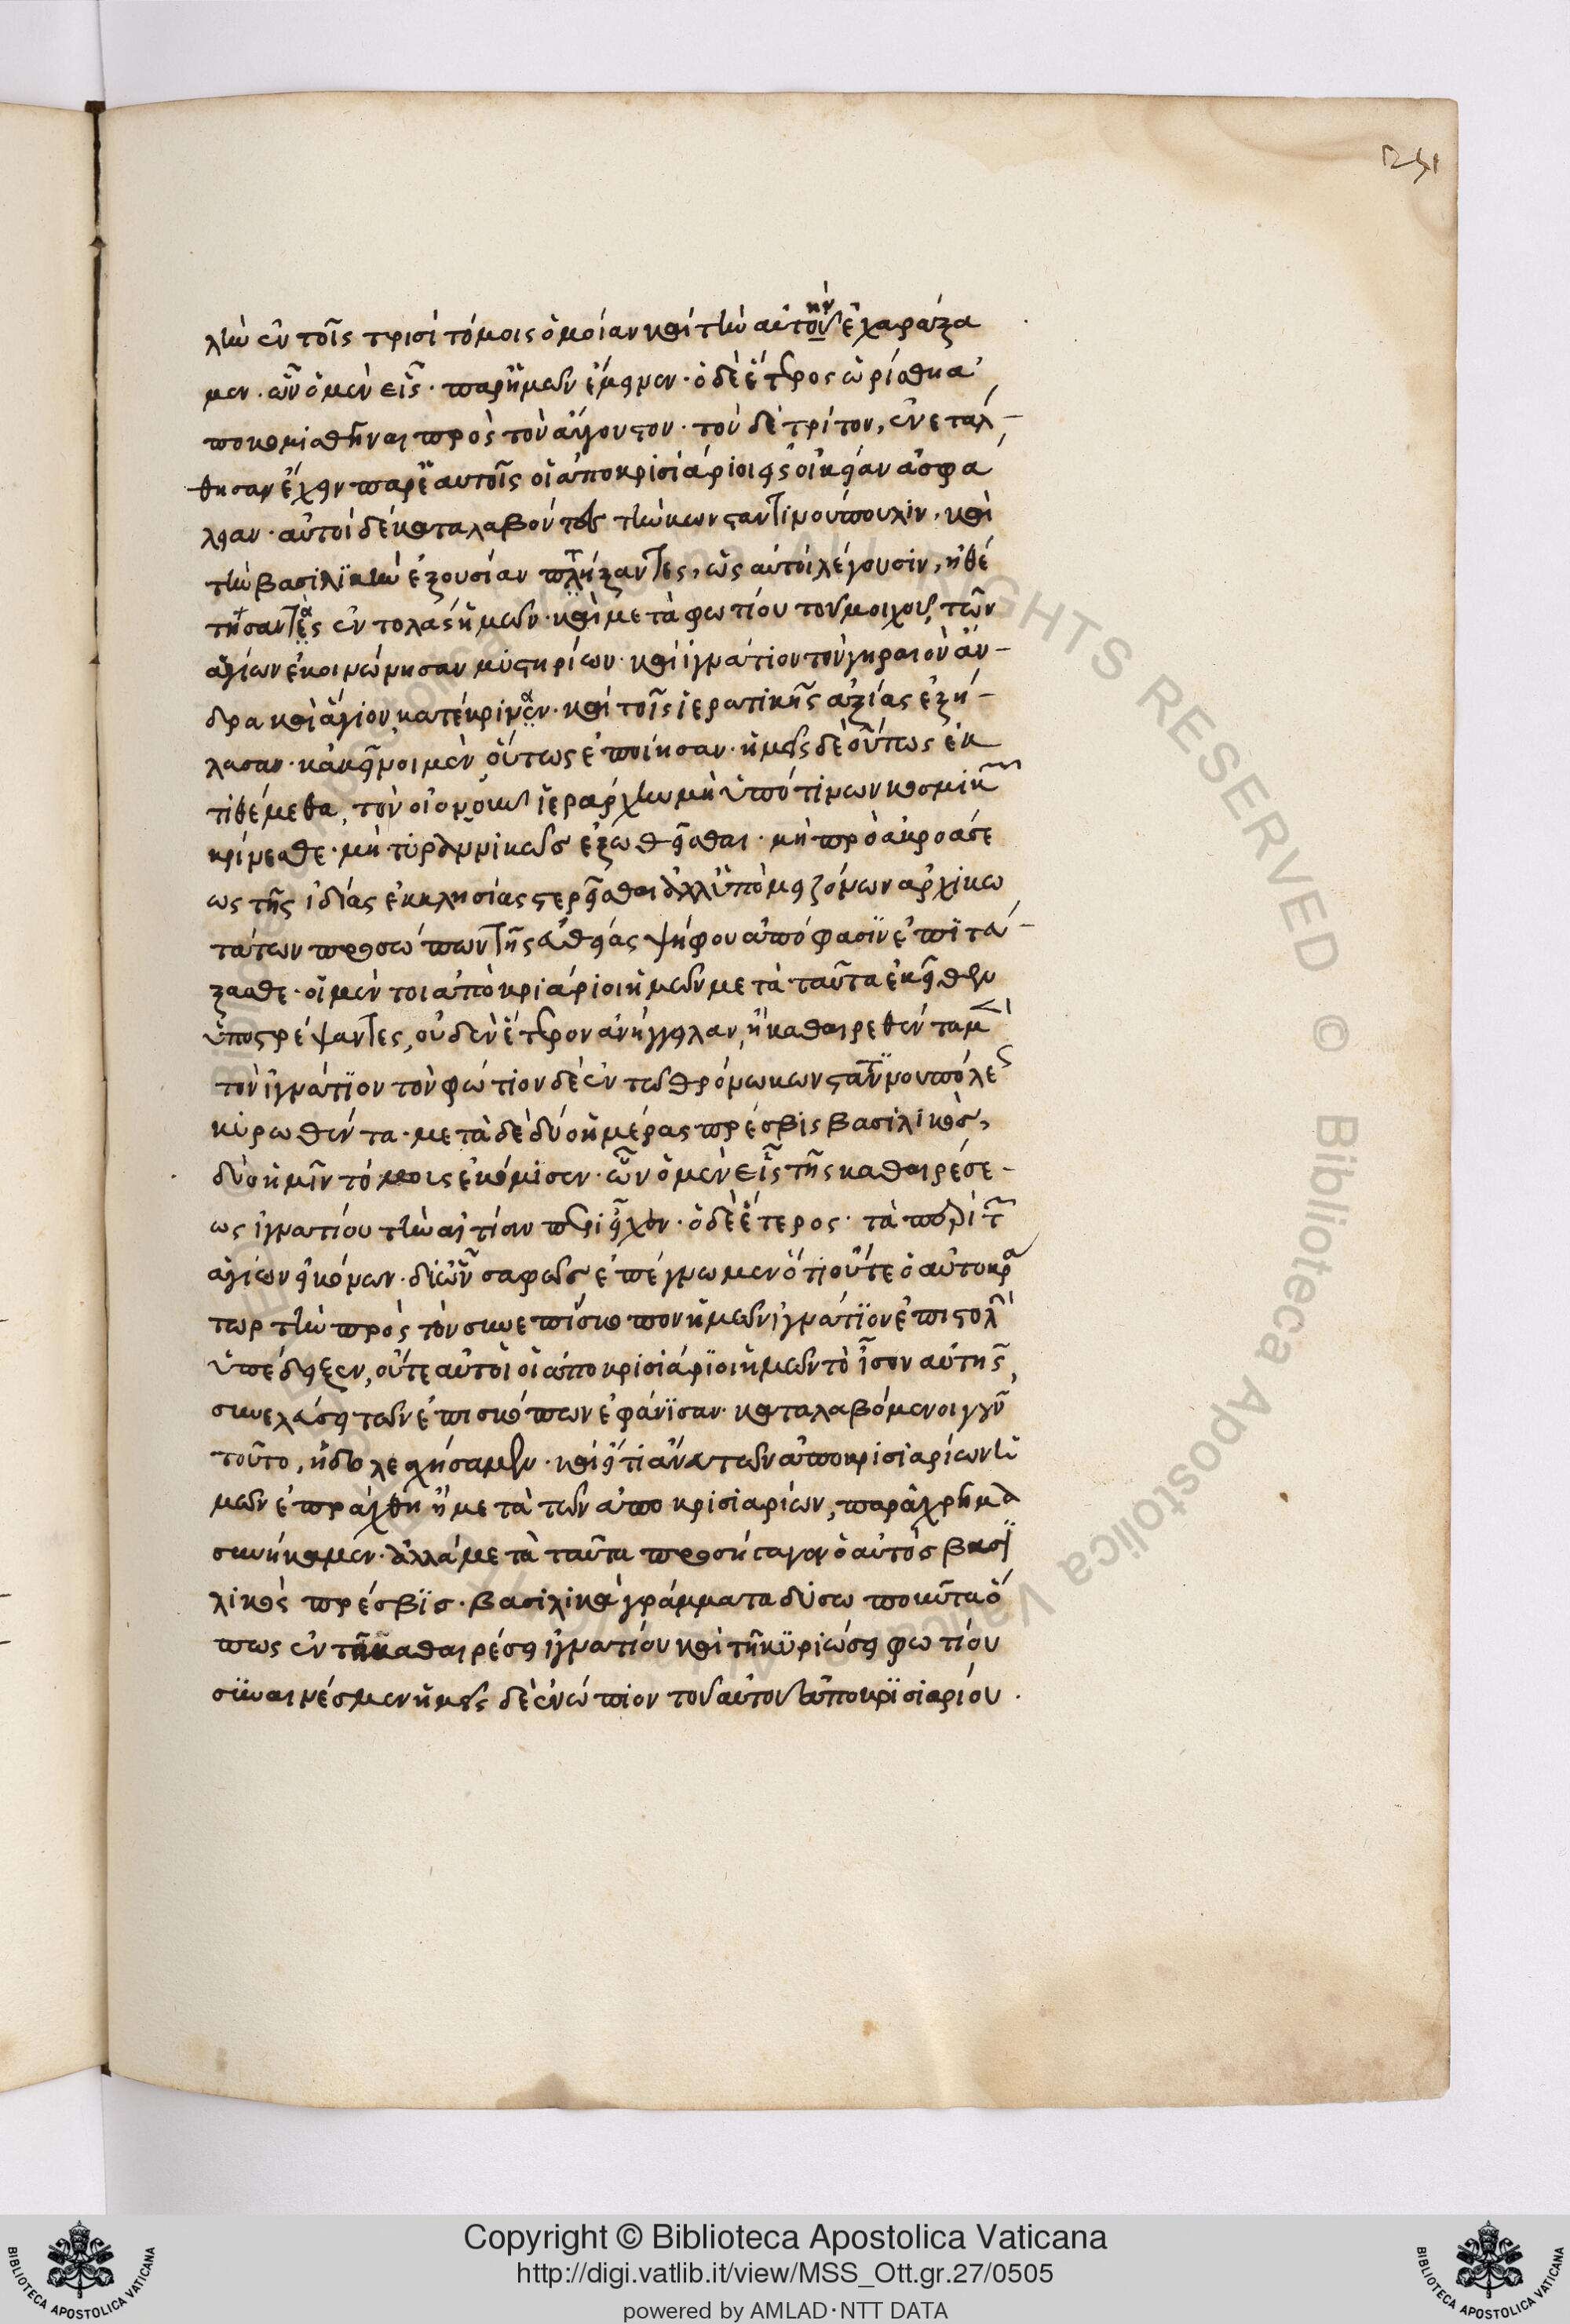 251
λὴν ἐν τοῖς τρισὶ τόμοις ὁμοίαν καὶ τὴν αὐτὴν ἐχαράξα
μεν. ὧν ὁ μὲν εἷς παρ' ἡμῶν ἔμεινεν. ὁ δὲ ἕτερος ὡρίσθη ἀ
ποκομισθῆναι πρὸς τὸν αὔγουστον. τὸν δὲ τρίτον, ἐνετάλ
θησαν ἔχειν παρ' ἑαυτοῖς οἱ ἀποκρισιάριοι εἰς οἰκείαν ἀσφά
λειαν. αὐτοὶ δὲ καταλαβόντες τὴν κωνσταντινούπουλιν, καὶ
τὴν βασιλικὴν ἐξουσίαν πλήξαντες, ὡς αὐτοὶ λέγουσιν, ἠθέ
τησαν τὰς ἐντολὰς ἡμῶν. καὶ μετὰ φωτίου τοῦ μοιχοῦ, τῶν
ἁγίων ἐκοινώνησαν μυστηρίων. καὶ ἰγνάτιον τὸν γηραιὸν ἄν
δρα καὶ ἅγιον κατέκριναν. καὶ τοῖς ἱερατικῆς ἀξίας ἐξή
λασαν. κἀκεῖνοι μὲν οὕτως ἐποίησαν. ἡμεῖς δὲ οὕπως ἐκ
τιθέμεθα, τὸν οἱονοῦν ἱεράρχην μὴ ὑπό τινων κοσμικῶν
κρίνεσθε. μὴ τυραννικῶς ἐξωθεῖσθαι. μὴ πρὸ ἀκροάσε
ως τῆς ἰδίας ἐκκλησίας στερεῖσθαι ἀλλ' ὑπὸ μειζόνων ἀρχικω
τάτων προσώπων τῆς εὐθείας ψήφου ἀπόφασιν ἐπιτά
ξασθε. οἱ μέντοι ἀποκρισιάριοι ἡμῶν μετὰ ταῦτα ἐκεῖθεν
ὑποστρέψαντες, οὐδὲν ἕτερον ἀνήγγειλαν, ἢ καθαιρεθέντα μὲν
τὸν ἰγνάτιον τὸν φώτιον δὲ ἐν τῷ θρόνῳ κωνσταντινουπόλεως
κυρωθέντα. μετὰ δὲ δύο ἡμέρας πρέσβις βασιλικὸς,
δύο ἡμῖν τόμοις ἐκόμισεν. ὧν ὁ μὲν εἷς τῆς καθαιρέσε
ως ἰγνατίου τὴν αἰτίαν περιεῖχεν. ὁ δὲ ἕτερος. τὰ περὶ τῶν
ἁγίων εἰκόνων. δι' ὧν σαφῶς ἐπέγνωμεν ὅτι οὔτε ὁ αὐτοκρά
τωρ τὴν πρὸς τὸν συνεπίσκοπον ἡμῶν ἰγνάτιον ἐπιστολὴν
ὑπέδειξεν, οὔτε αὐτοὶ οἱ ἀποκρισιάριοι ἡμῶν τὸ ἶσον αὐτῆς,
συνελάσει τῶν ἐπισκόπων ἐφάνισαν. καταλαβόμενοι γοῦν
τοῦτο, ἠδολεσχήσαμεν. καὶ εἴ τι ἀν τῶν ἀποκρισιαρίων ἡ
μῶν ἐπράχθη ἢ μετὰ τῶν ἀποκρισιαρίων, παράχρημα
συνήκαμεν. ἀλλὰ μετὰ ταῦτα προσήγαγεν ὁ αὐτὸς βασι
λικὸς πρέσβις. βασιλικὰ γράμματα δυσωποῦντα ὅ
πως ἐν τῇ καθαιρέσει ἰγνατίου καὶ τῇ κυριώσει φωτίου
συναινέσομεν ἡμεῖς δὲ ἐνώπιον τοῦ αὐτοῦ ἀποκρισιαρίου.
Copyright © Biblioteca Apostolica Vaticana
http://digi.vatlib.it/view/MSS_Ott.gr.27/0505
powered by AMLAD·NTT DATA